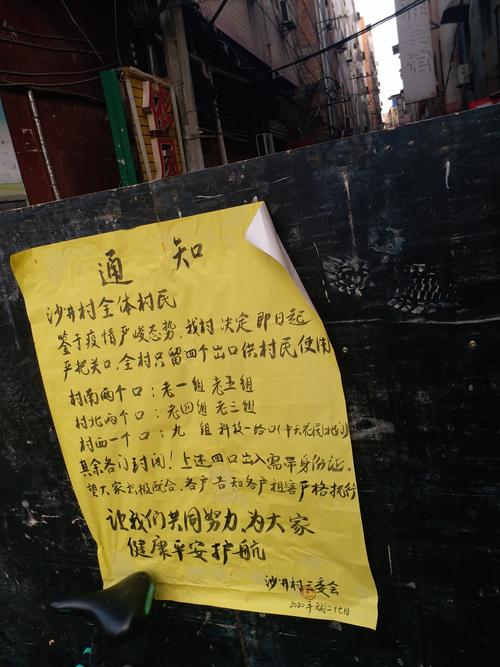 通知
沙井村全体村民
鉴于疫情严峻态势,我村决定即日起
严把关口,全村只留四个出口供村民使用
村南两个口:老一组 老五组
村北两个口:老四组 老三组
村西一个口:九组 科技一路口(中天花园北门)
其余各门封闭!上述四口出入需带身份证。
望大家积极配合,各户告知各户租客严格执行
让我们共同努力,为大家
健康平安护航
沙井村三委会
2020年 月二十七日